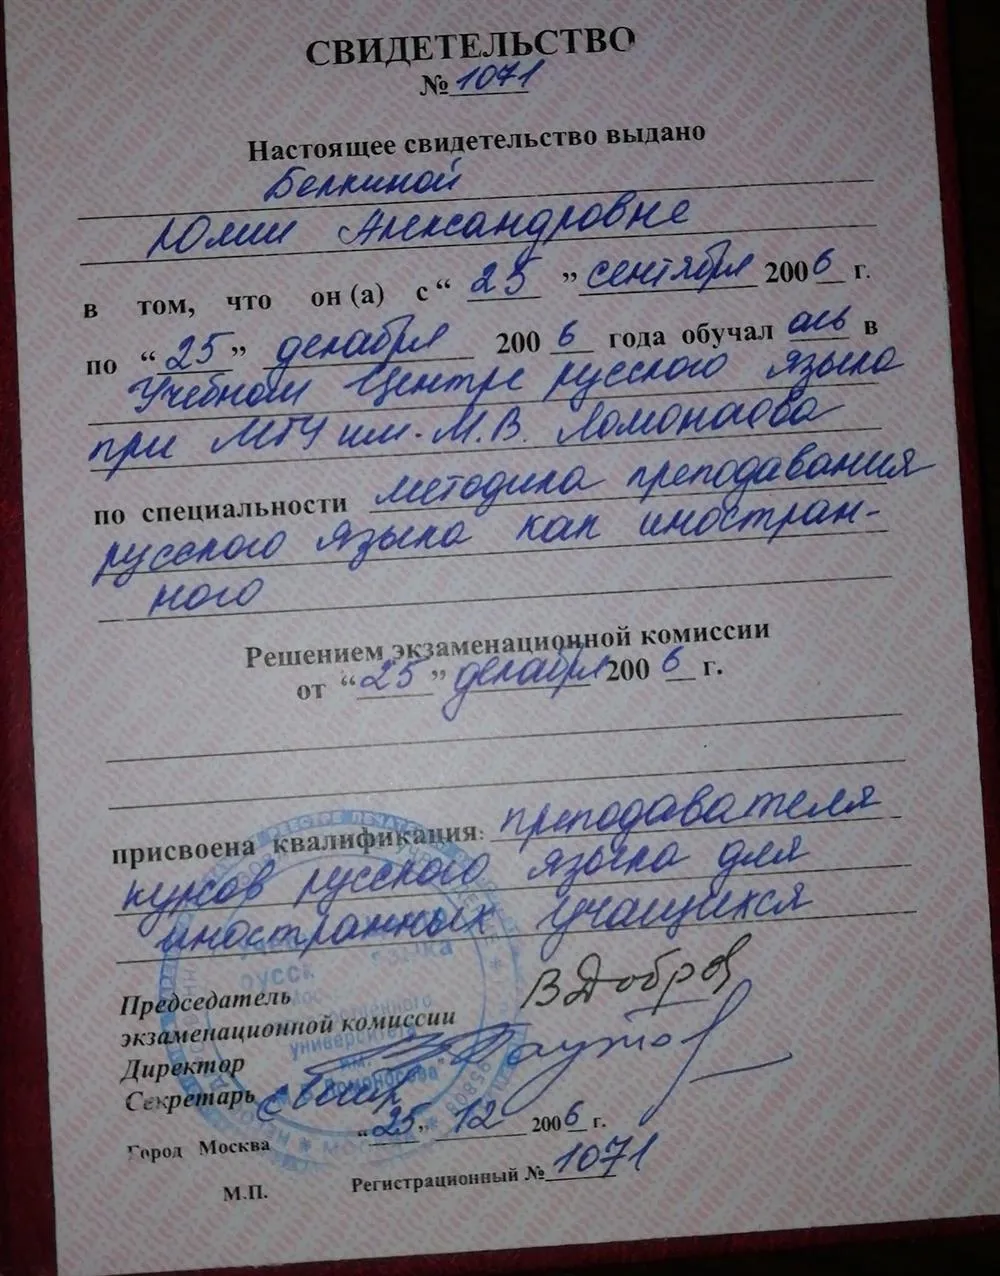 СВИДЕТЕЛЬСТВО
№ 1071
Настоящее свидетельство выдано
Белкиной
Юлии Александровне
в том, что он (а) с “ 25 ” сентября 2006 г.
по “25” декабря 2006 года обучал ась в
Учебном Центре русского языка
при МГУ им. М.В. Ломоносова
по специальности методика преподавания
русского языка как иностран-
ного
Решением экзаменационной комиссии
от “25” декабря 2006 г.
присвоена квалификация: преподавателя
курсов русского языка для
иностранных учащихся
Председатель
экзаменационной комиссии
Директор
Секретарь
“25” 12 2006 г.
Город Москва
М.П.
Регистрационный № 1071